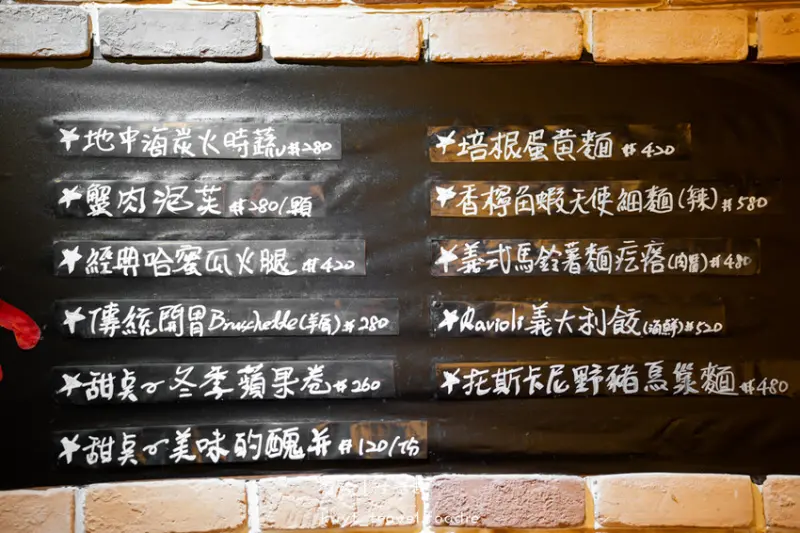 ★地中海炭火時蔬 #280
★蟹肉泡芙 #280/顆
★經典哈蜜瓜火腿 #420
★傳統開胃Bruschette(羊唇)#280
★甜桌~冬季蘋果卷#260
★甜桌~美味的醜餅#120/巧
★培根蛋黃麵 #420
★香檸角蝦天使細麵(辣)#580
★義式馬鈴薯麵疙瘩(肉醬)#480
★Ravioli義大利餃(海鮮)#520
★托斯卡尼野豬鳥巢麵#480